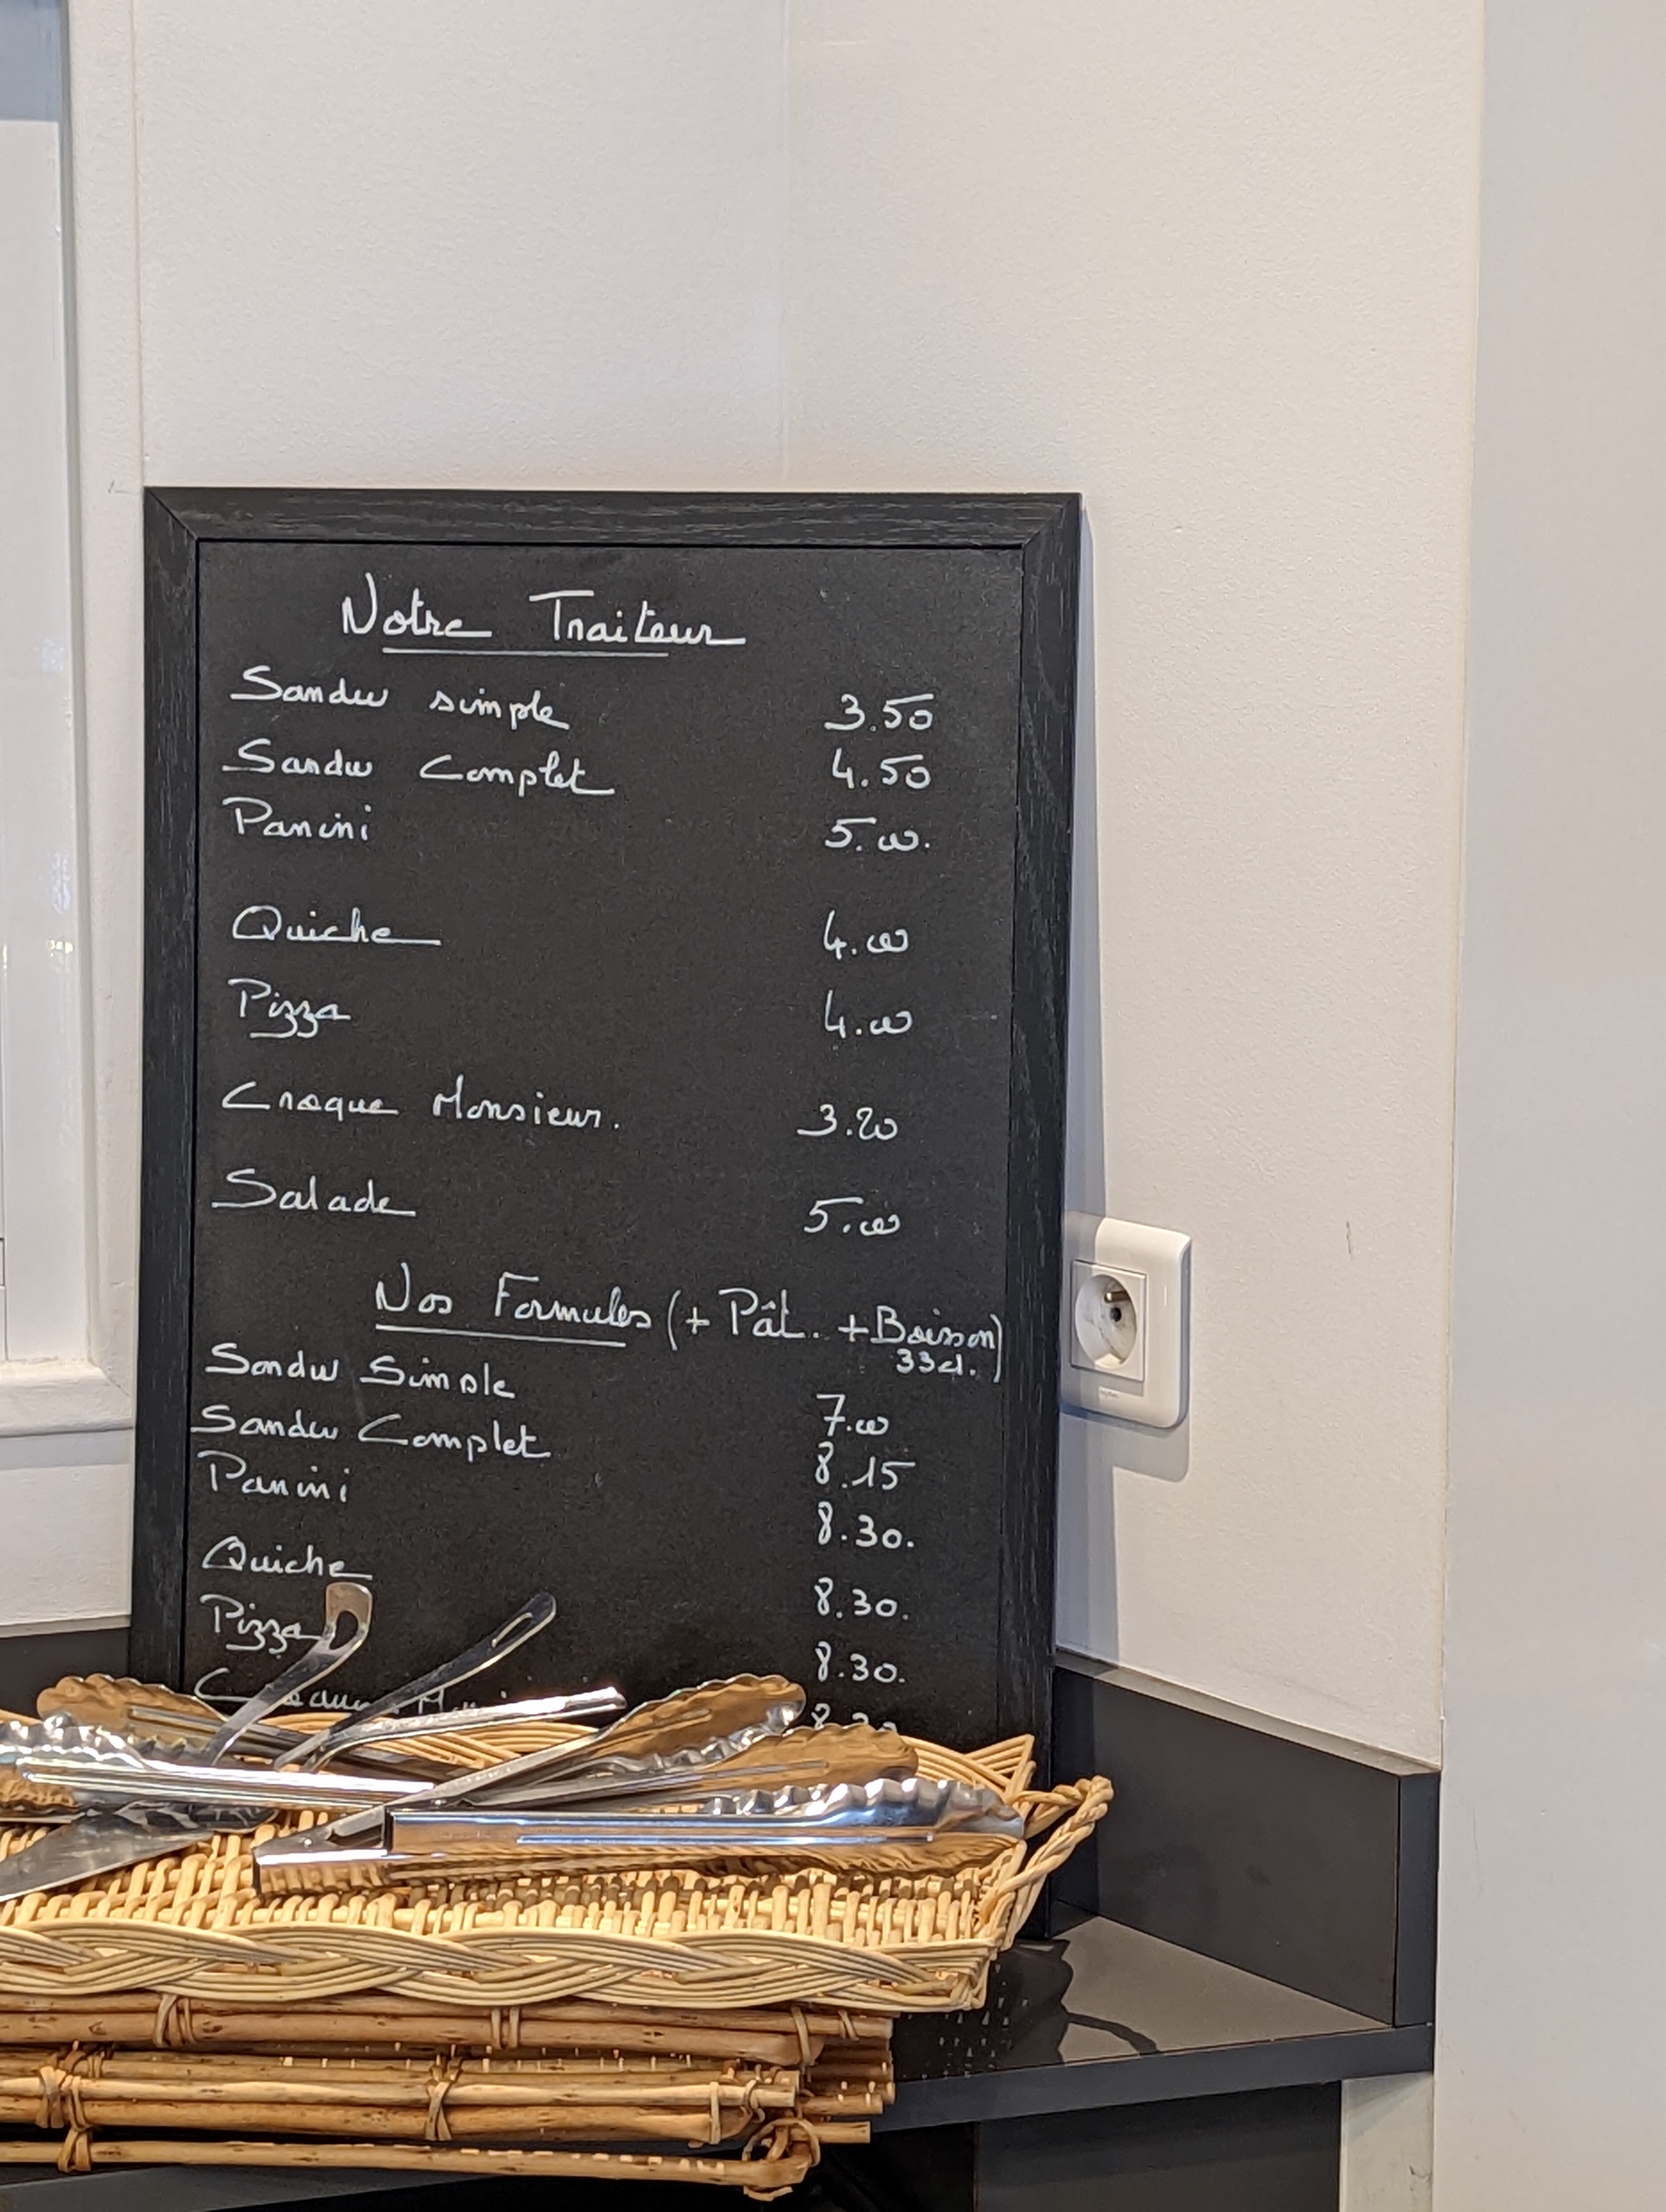 Notre Traiteur
Sandw simple 3.50
Sandw Complet 4.50
Panini 5.00.
Quiche 4.00
Pizza 4.00
Croque Monsieur. 3.20
Salade 5.00
Nos Formules (+ Pât. + Boisson)
33cl.
Sandw Simple 7.00
Sandw Complet 8.15
Panini 8.30.
Quiche 8.30.
Pizza 8.30.